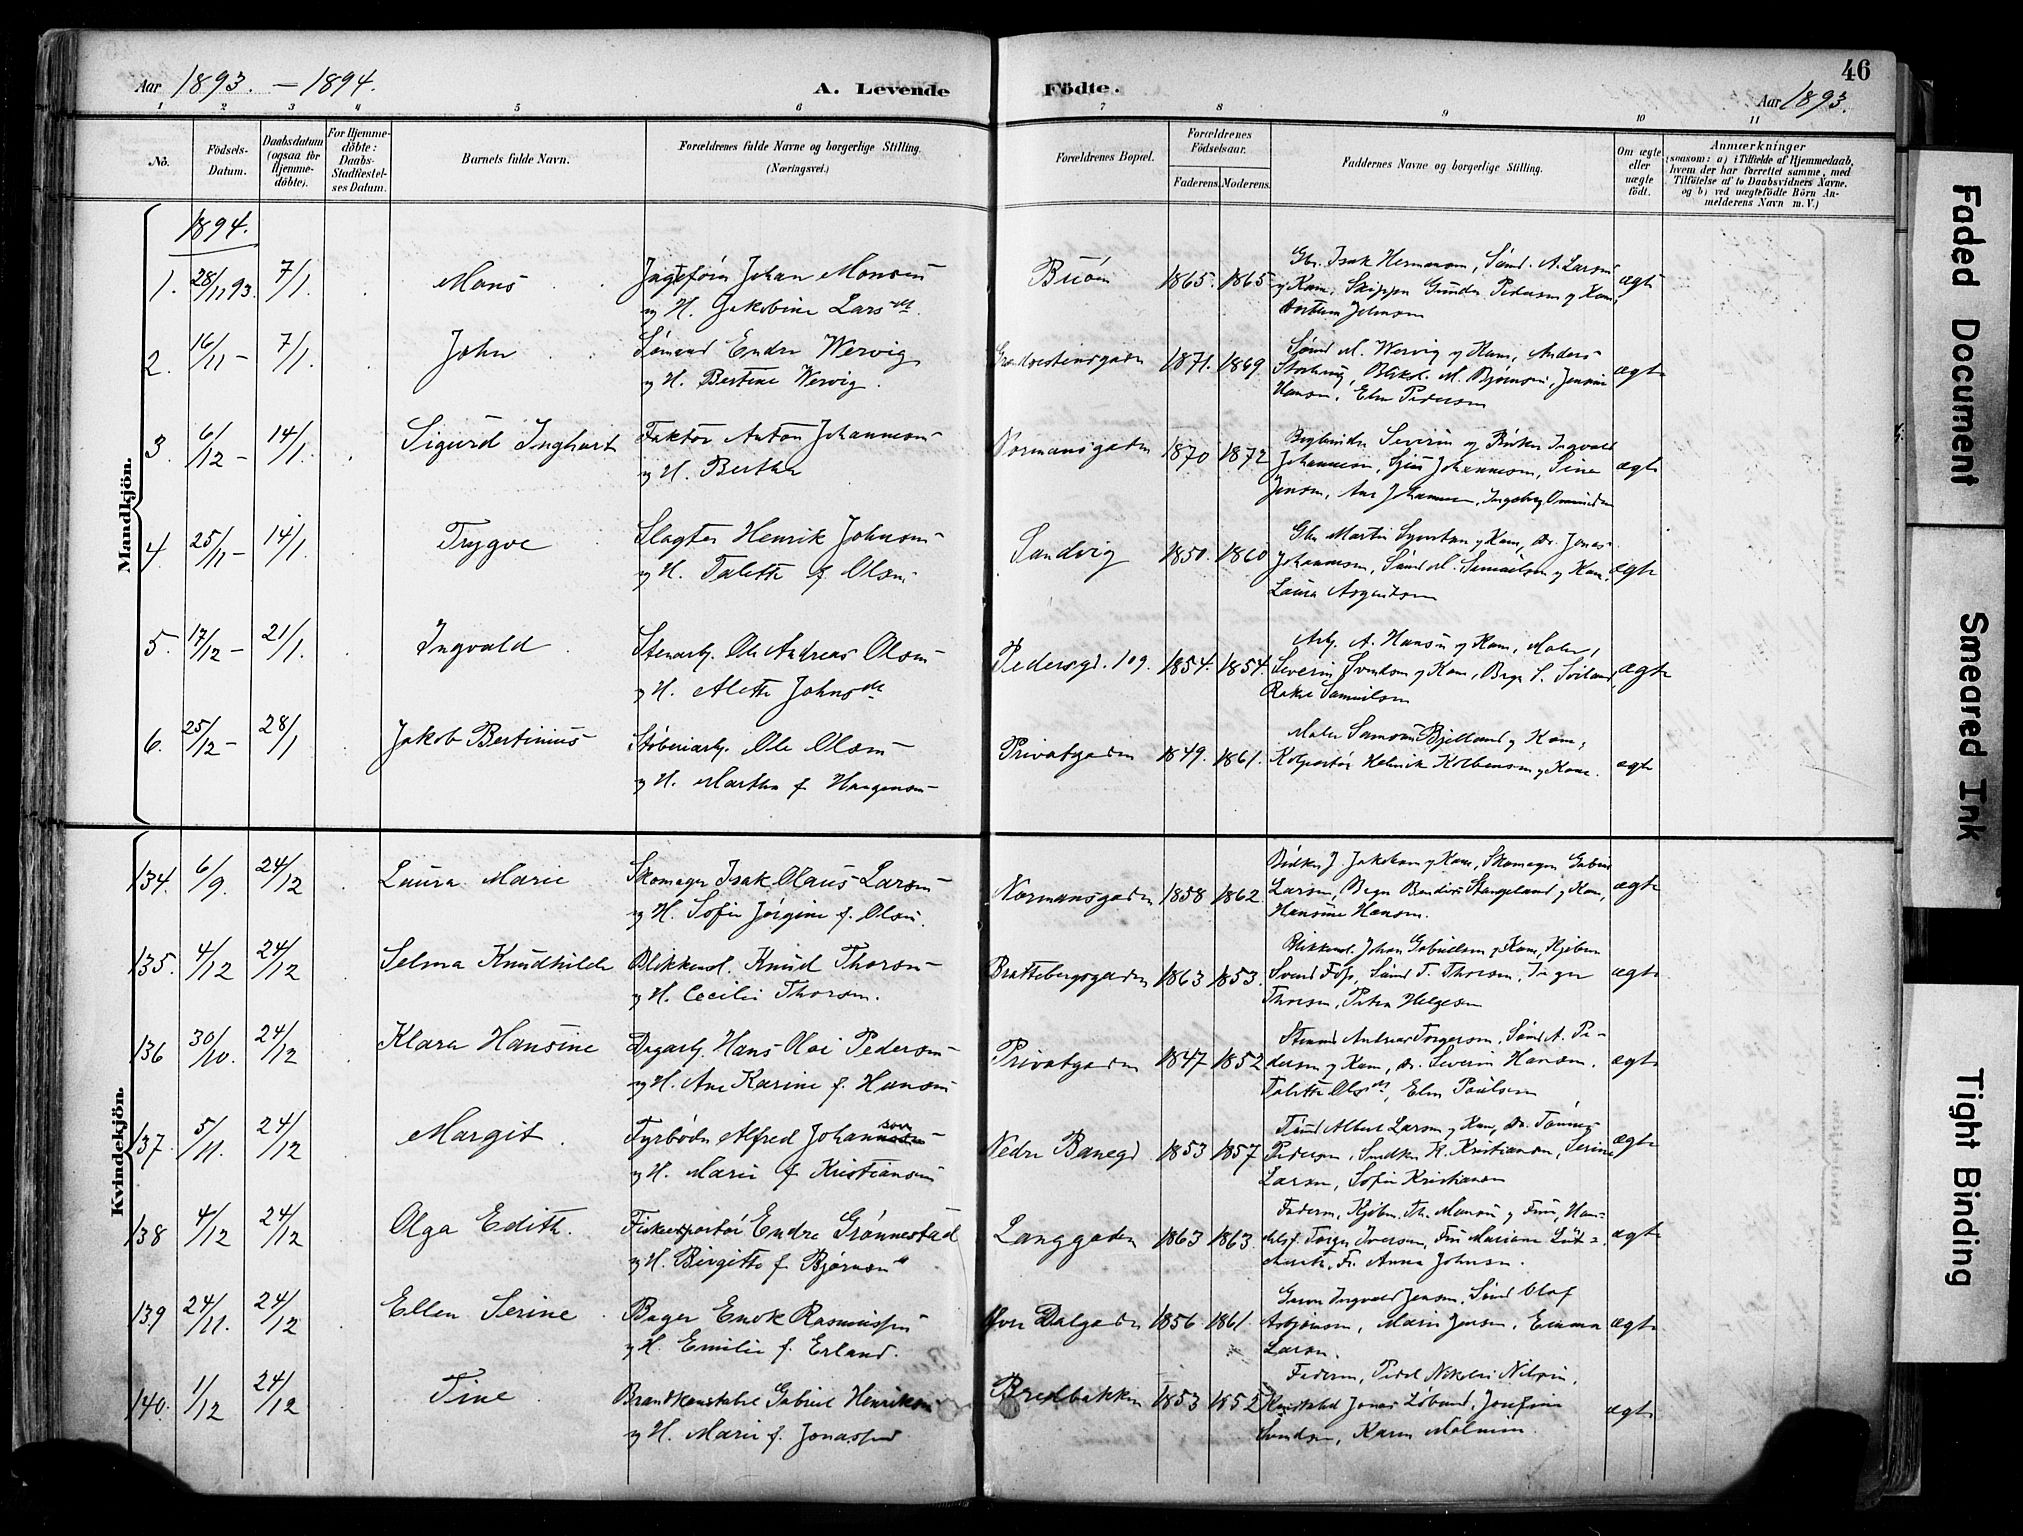 Aar 1893. – 1894.
A. Levende
Födte.
46
Aar 1893.
1 2 3 4 5 6 7 8 9 10 11
No.
Födsels-Datum.
Daabsdatum (ogsaa for Hjemme-döbte).
For Hjemme-döbte: Daabs-Stadfæstel-ses Datum.
Barnets fulde Navn.
Forældrenes fulde Navne og borgerlige Stilling.
(Næringsvei.)
Forældrenes Bopæl.
Forældrenes Födselsaar.
Faderens. Moderens.
Faddernes Navne og borgerlige Stilling.
Om ægte eller uægte født.
Anmærkninger
(saasom: a) i Tilfælde af Hjemmedaab, hvem der har forrettet samme, med Tilföielse af to Daabsvidners Navne. og b) ved uægtefödte Börn An-melderens Navn m. V.)
Mandkjön.
1894.
1. 28/11 93. 7/1. Mons Jagtefører Johan Monsen Buöen 1865. 1865 Gbr. Isak Hermansen, Sømd. A. Larsen ægte
og H. Jakobine Larsdt. og Kone, Skipper Gunder Pedersen og Kone,
Johnsen
2. 16/11 – 7/1. John Sömand Endre Wervig 1871. 1869 Sømd M. Wervig og Kone, Anders ægte
og H. Bertine Wervig. M. Bjørnsen, Jensine
Hansen, Elen Pedersen
3. 6/12 – 14/1. Sigurd Inghart Faktor Anton Johannesen Normansgaden 1870 1872 Severin og Bødker Ingvald ægte
og H. Berthe Johannesen, Johannesen, Sine
Jensen, Ane Johannesen, Ingeborg
4. 25/11 – 14/1. Trygve Slagter Henrik Johnsen Sandvig 1850. 1860 Gbr Martin og Kone, Do. Jonas ægte
og H. Talette f. Olsen Johannesen, Sømd M. Samuelsen og Kone,
Laura
5. 17/12 – 21/1. Ingvald Stenarb. Ole Andreas Olsen Pedersgd. 109. 1854. 1854. Arb. A. Hansen og Kone, Maler ægte
og H. Alette Johnsdt Severin Svendsen og Kone,
Samuelsen
6. 25/12 – 28/1 Jakob Bertinius Støberiarb. Ole Olsen Privatgaden 1849. 1861. Maler Samson Bjelland og Kone, ægte
og H. Martha f. Haagensen Kolportør Henrik Kolbensen og Kone.
Kvindekjön.
134. 6/9. 24/12 Laura Marie Skomager Isak Olaus Larsen Normansgaden 1858 1862. Bødker J. Jakobsen og Kone, Skomager Gabriel ægte
og H. Sofie Jörgine f. Olsen. Larsen, Stangeland og Kone,
Hansine Hansen.
135. 4/12 24/12 Selma Knudhilde Blikkensl. Knud Thorsen Brattebergsgaden 1863 1853. Blikkensl. Johan Gabrielsen og Kone, Kjøbm ægte
og H. Cecilie Thorsen. Svend Foss, Sømd T. Thorsen, Inger
Thorsen, Petra Helgesen
136 30/10. 24/12 Klara Hansine Dagarb. Hans Olai Pedersen Privatgaden 1847 1852 Andreas Torgersen, Sømd A. Pe- ægte
og H. Ane Karine f. Hansen dersen og Kone, Do. Severin Hansen,
Talette Olsdt, Elen Paulsen
137. 5/11. 24/12 Margit. Fyrbøder Alfred Johansen Nedre Banegd 1853 1857 Albert Larsen og Kone, Do. Tønnes ægte
og H. Marie f. Kristiansen Pedersen, K. Kristiansen, Serine
Larsen, Sofie Kristiansen
138 4/12 24/12 Olga Edith. Fiskeexportör Endre Grönnestad Langgaden 1863 1863. Faderen, Kjøbm. Th. Monsen og Frue, Han- ægte
og H. Birgitte f. Bjørnsen delsf. Torger Iversen, Fru Mariane
Fr. Anna Johnsen.
139 24/11. 24/12 Ellen Serine Bager Enok Rasmussen Øvre Dalgaden 1856 1861. Ingvald Jensen, Sømd Olaf ægte
og H. Emilie f. Erland. Asbjørnsen, Marie Jensen, Emma
Larsen.
140. 1/12 24/12 Tine Brandkonstabel Gabriel Henriksen Bredbakken 1853 1852 Faderen, Nikolai Nilsen, ægte
og H. Marie f. Jonassen Konstabel Jonas Josefine
Svendsen, Karen
Faded Document
Smeared Ink
Tight Binding